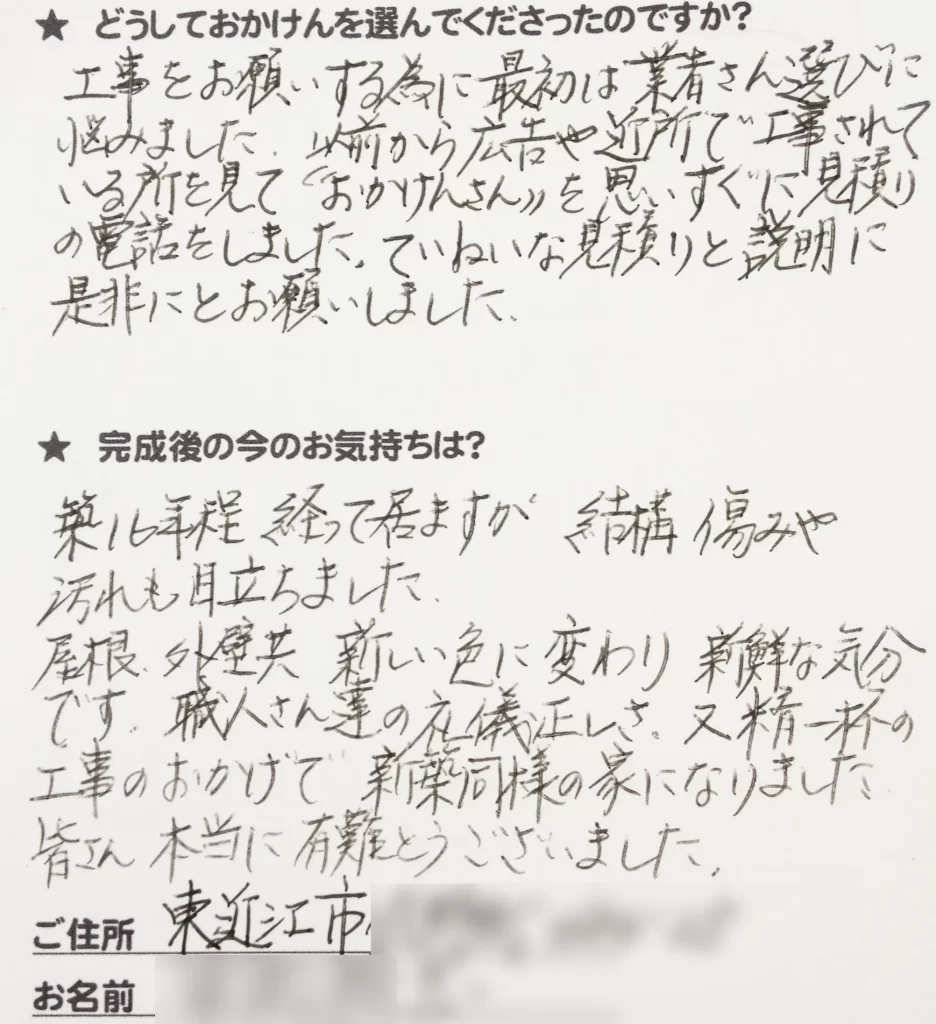 ★ どうしておかけんを選んでくださったのですか?
工事をお願いする為に最初は業者さん選びに
悩みました。以前から広告や近所で工事されて
いる所を見て“おかけんさん”を思いすぐに見積り
の電話をしました。ていねいな見積りと説明に
是非にとお願いしました。
★ 完成後の今のお気持ちは?
築16年程 経って居ますが 結構 傷みや
汚れも目立ちました。
屋根、外壁共 新しい色に変わり 新鮮な気分
です。職人さん達の礼儀正しさ、又精一杯の
工事のおかげで 新築同様の家になりました
皆さん 本当に有難とうございました。
ご住所 東近江市
お名前